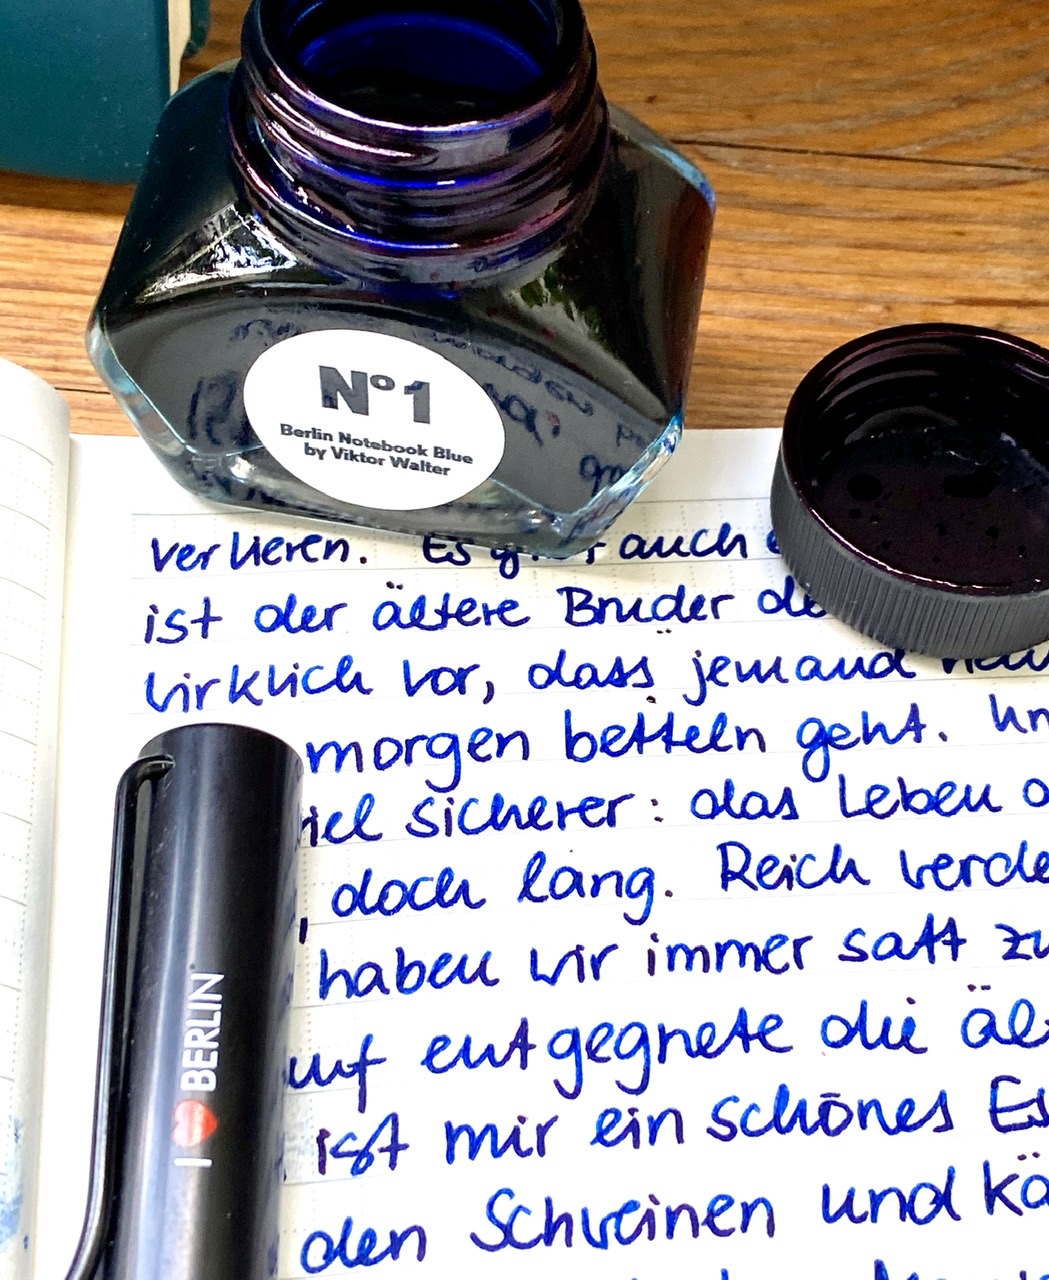 Nº1
Berlin Notebook Blue
by Viktor Walter
verlieren. Es auch
ist der ältere Bruder
wirklich vor, dass jemand
morgen betteln geht.
sicherer: das Leben
, doch lang. Reich
haben wir immer satt zu
entgegnete die
ist mir ein schönes
den Schreinen und
I ❤ BERLIN